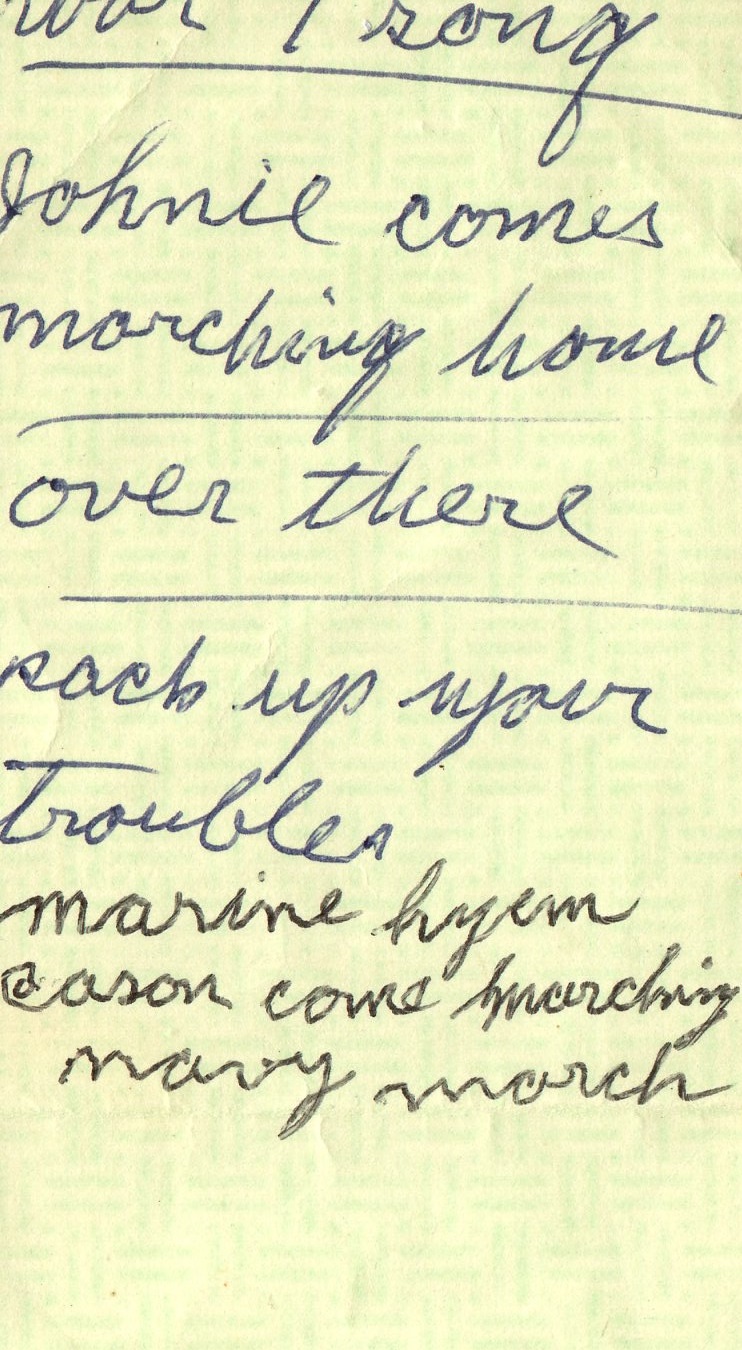 war 1 song
Johnie comes
marching home
over there
pack up your
troubles
marine hyem
cason come marching
navy march